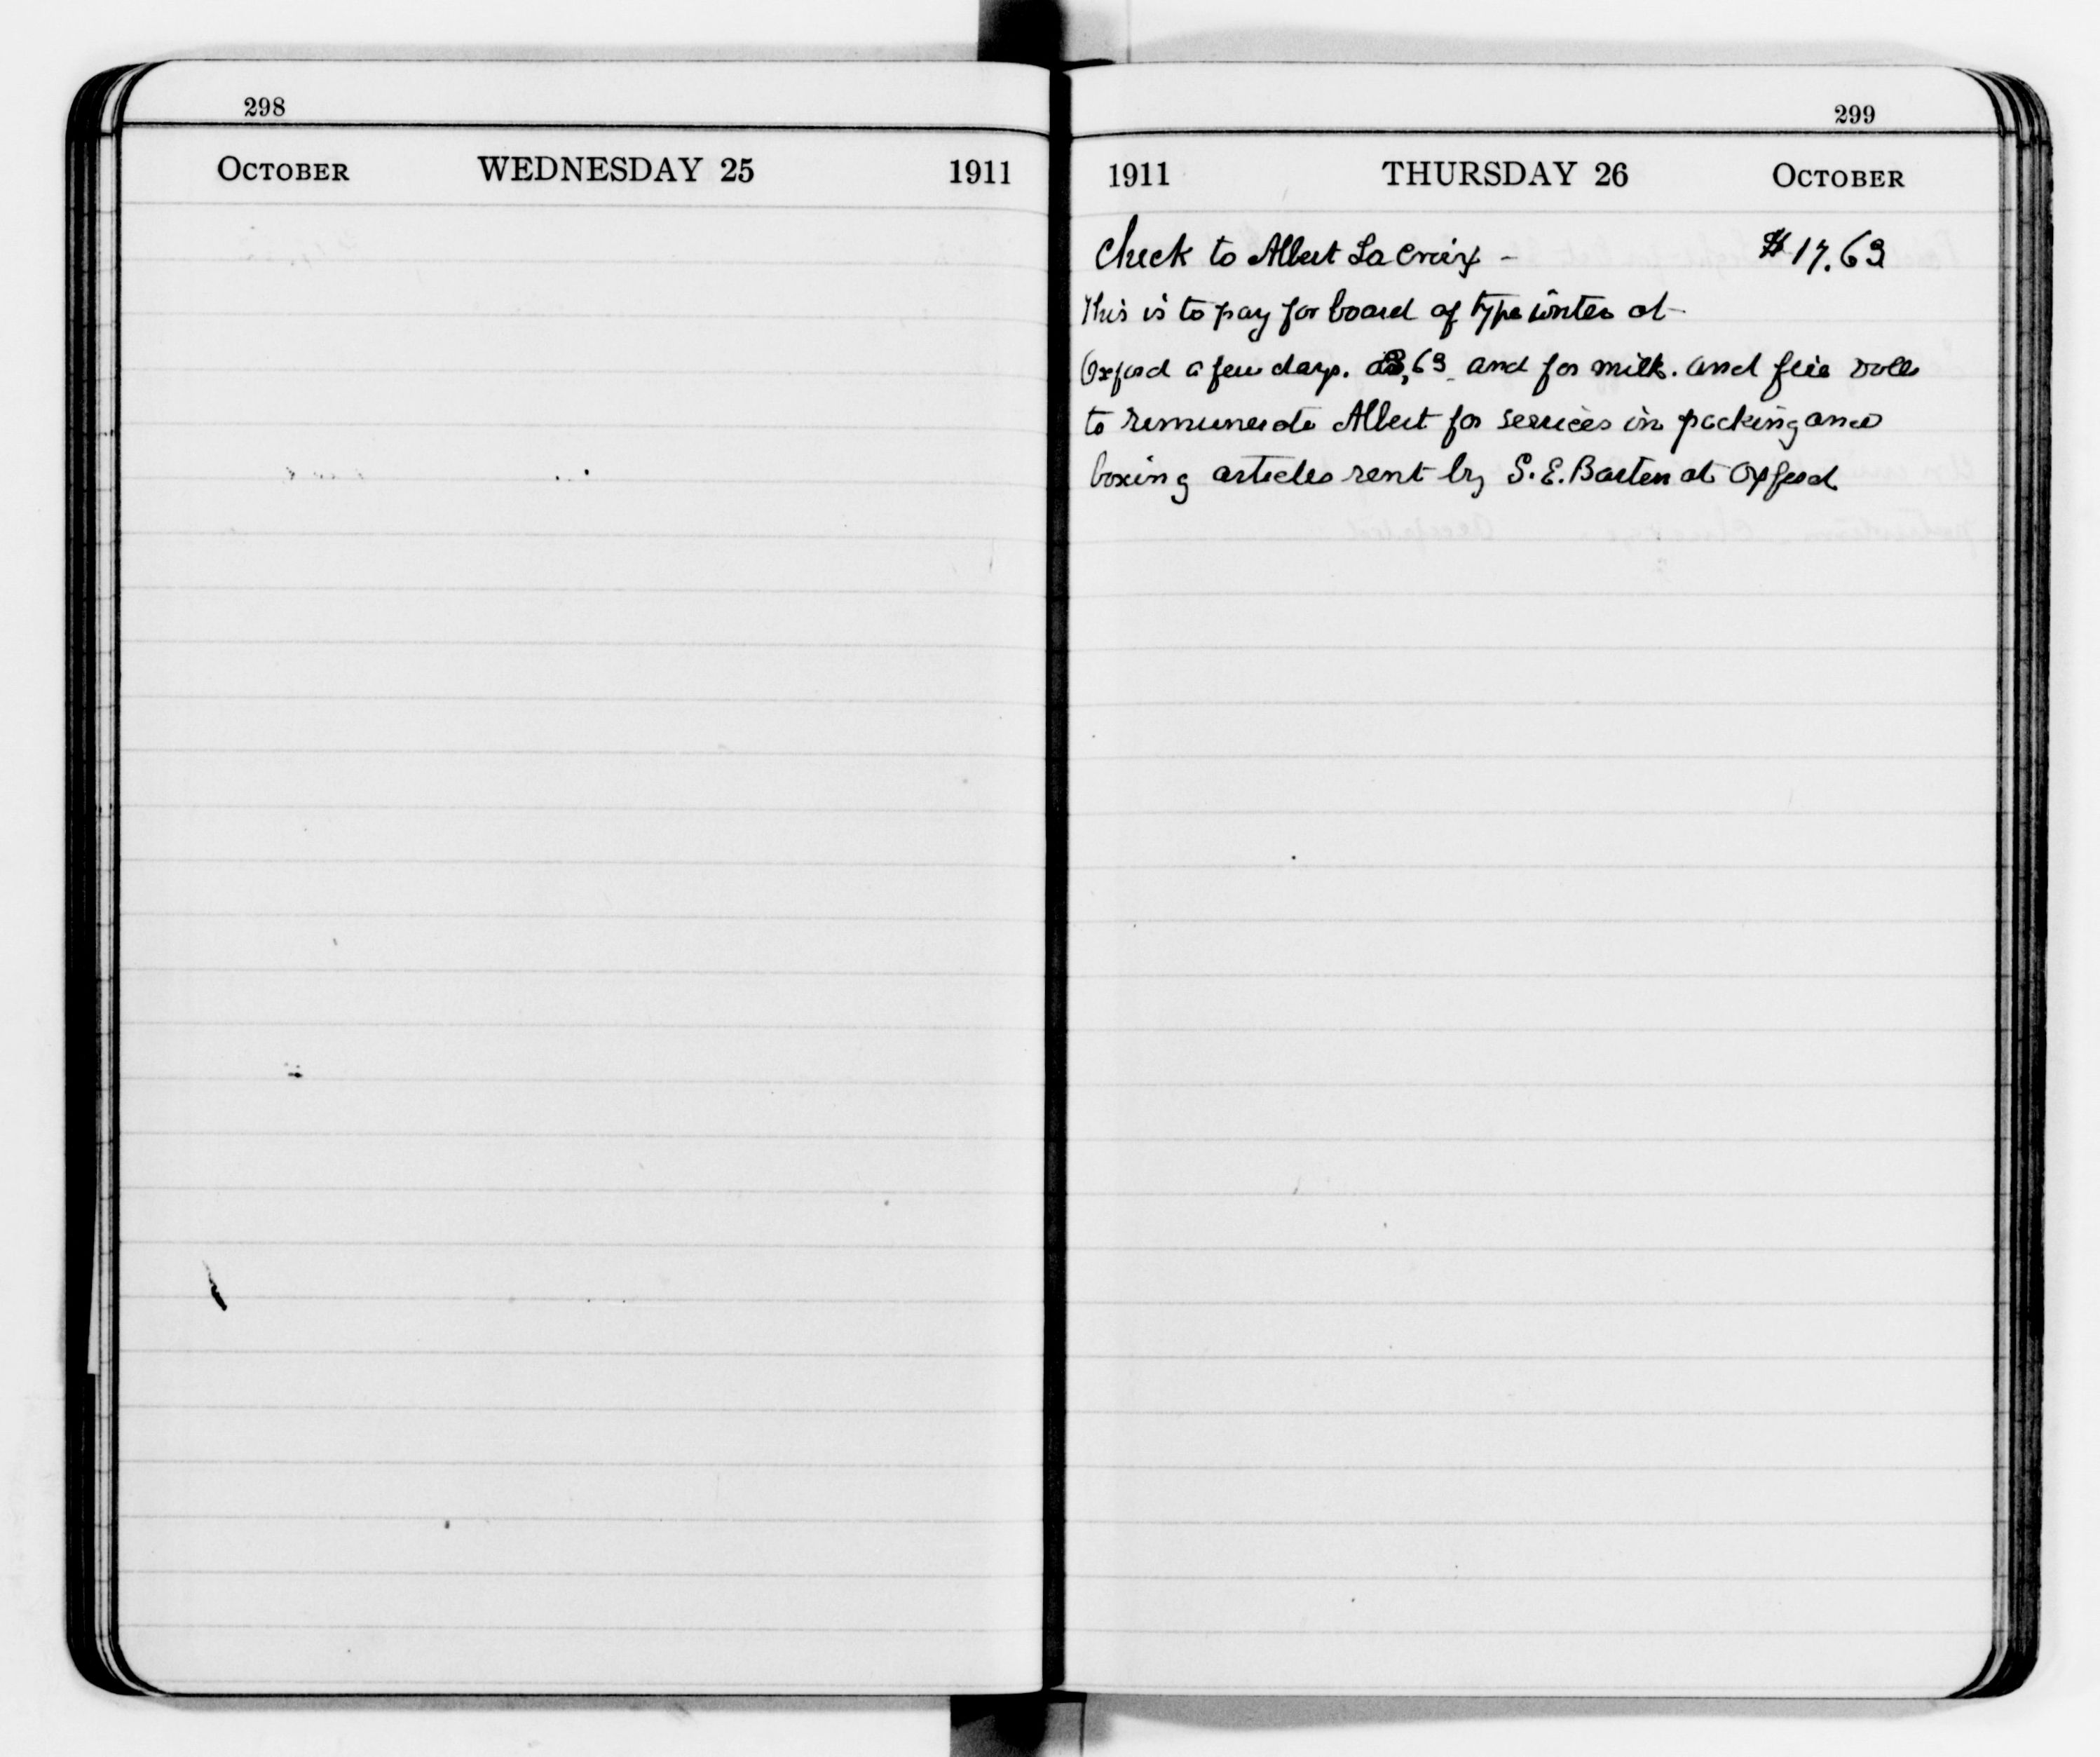 298
OCTOBER WEDNESDAY 25 1911
299
1911 THURSDAY 26 OCTOBER
Check to Albert La Croix - $17.63
This is to pay for board of type writer at
Oxford a few days. 63 and for milk. and five Dolls
to remunerate Albert for services in packing and
boxing articles sent by S. E. Barton at Oxford